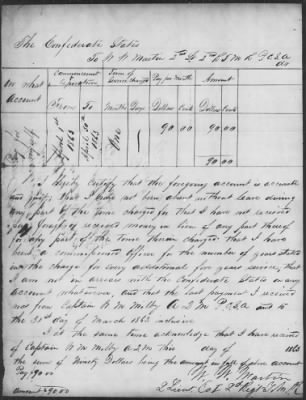 The Confederate States
To W. W. Martin 2d Lt 2d K.S.M.R. P.C.S.A
Dr
On what Account
Commencement & Expiration
Term of Service charged
Pay per Month
Amount
From To Months Days Dollars Cents Dollars Cents
April 1st 1863 April 30th 1863 One 90.00 90.00
90.00
I Hereby Certify that the foregoing account is accurate
and just; that I have not been absent without leave during
any part of the time charged for that I have not received
pay forage or received money in lieu of any part thereof
for any part of the time therein charged; that I have
been a commissioned officer for the number of years stated
in the charge for every additional five years service; that
I am not in arrears with the Confederate States on any
account whatever and that the last payment I received
was from Captain W. M. Milby A.Q.M. P.C.S.A. and to
the 31st day of March 1863 inclusive
I at the same time acknowledge that I have received
of Captain W. M. Milby A.Q.M. this day of 186
the sum of Ninety Dollars being the amount in full of above account
Pay $90.00
W. W. Martin
Amount $90.00
2 Lieut Co